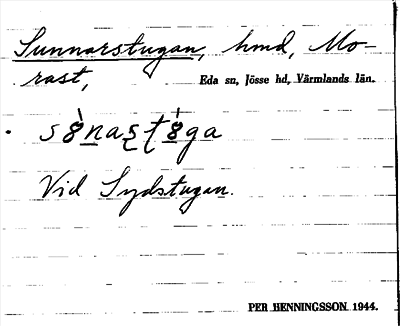 Sunnarstugan, hmd, Mo-
rast, Eda sn, Jösse hd, Värmlands län.
Vid Sydstugan.
PER HENNINGSSON 1944.